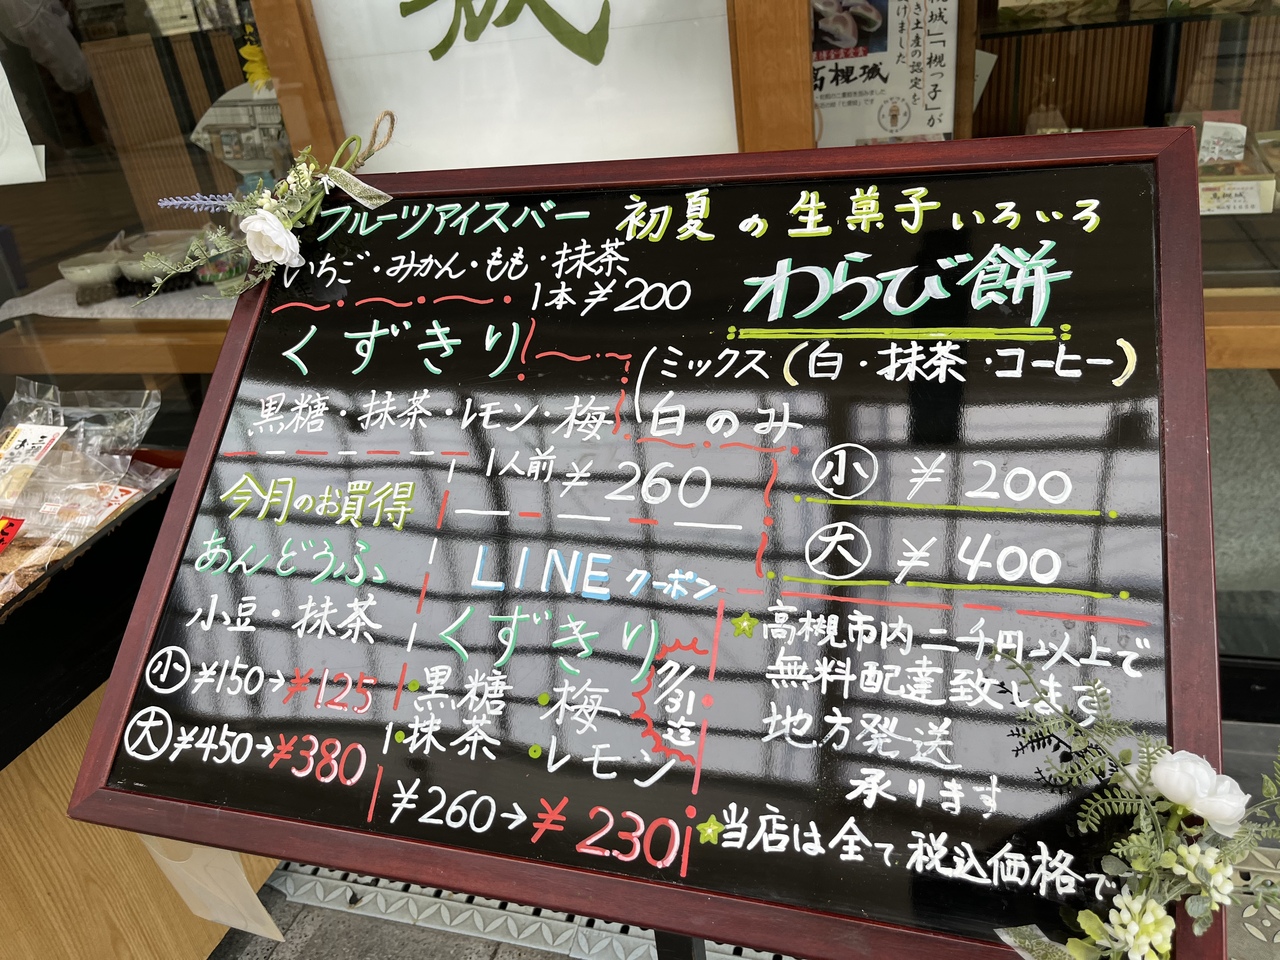 フルーツアイスバー
いちご・みかん・もも・抹茶
1本 ¥200
くずきり
黒糖・抹茶・レモン・梅
1人前 ¥260
今月のお買得
あんどうふ
小豆・抹茶
小 ¥150→¥125
大 ¥450→¥380
LINE クーポン
くずきり
7/31迄
・黒糖 ・梅
・抹茶 ・レモン
¥260→¥230
初夏の生菓子いろいろ
わらび餅
ミックス(白・抹茶・コーヒー)
白のみ
小 ¥200
大 ¥400
★高槻市内二千円以上で
無料配達致します
地方発送
承ります
★当店は全て税込価格で
高槻城
」「槻っ子」が
き土産の認定を
けました